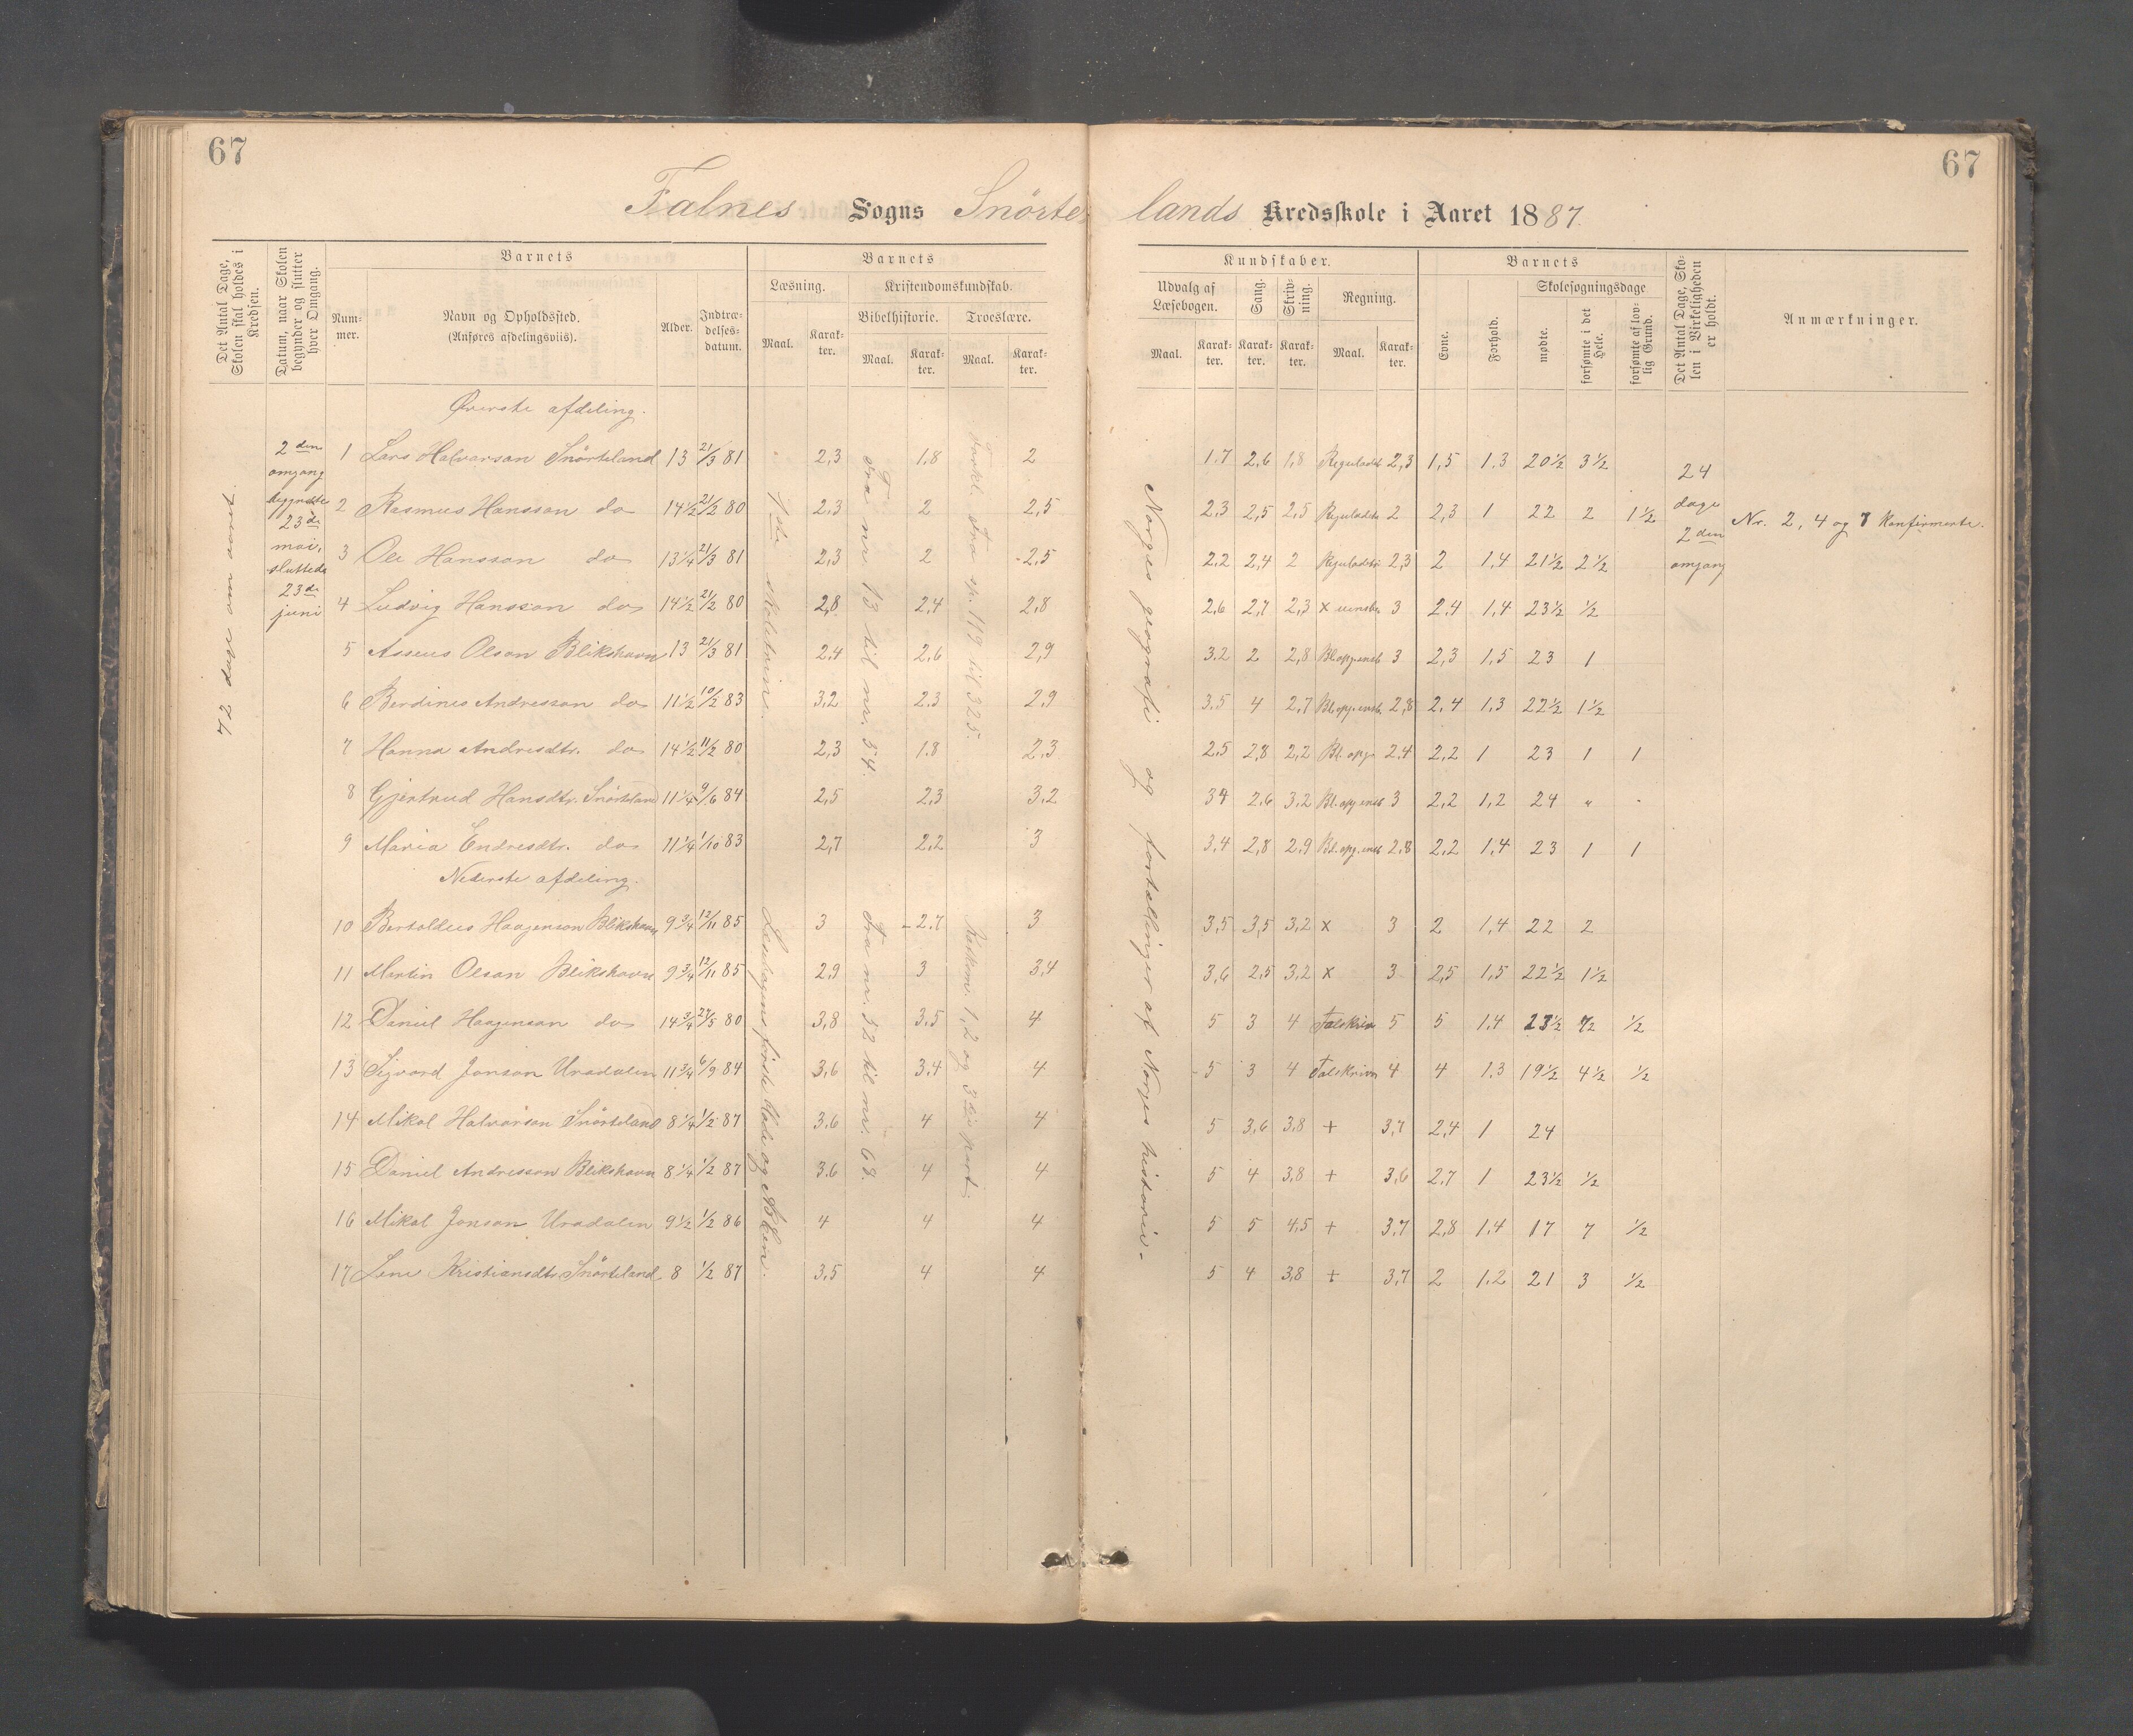 67
67
Falnes Sogns Snörtelands Kredsskole i Aaret 1887.
Det Antal Dage, Skolen skal holdes i Kredsen.
Datum, naar Skolen begynder og slutter hver Omgang.
Barnets
Num-mer.
Navn og Opholdssted.
(Anføres afdelingsviis).
Alder.
Indtræ-delses-datum.
Barnets
Læsning.
Maal.
Karak-ter.
Kristendomskundskab.
Bibelhistorie.
Maal.
Karak-ter.
Troeslære.
Maal.
Karak-ter.
Kundskaber.
Udvalg af Læsebogen.
Maal.
Karak-ter.
Sang.
Karak-ter.
Skriv-ning.
Karak-ter.
Regning.
Maal.
Karak-ter.
Barnets
Evne.
Forhold.
Skolesøgningsdage
mødte.
forsømte i det Hele.
forsømte af lov-lig Grund.
Det Antal Dage, Sko-len i Virkeligheden er holdt.
Anmærkninger.
72 dage om aaret.
2den omgang begyndte 23de mai, sluttede 23de juni
Øverste afdeling.
1 Lars Halvarson Snörteland 13 21/3 81 2,3 1.8 2 1.7 2,6 1,8 Reguladetri 2,3 1,5 1.3 20½ 3½
2 Rasmus Hansson do 14½ 21/2 80 2,3 2 2,5 2,3 2,5 2,5 Reguladetri 2 2,3 1 22 2 1½
3 Ole Hansson do 13¼ 21/3 81 2,3 2 2,5 2.2 2,4 2 Reguladetri 2,3 2 1,4 21½ 2½
4 Ludvig Hansson do 14½ 21/2 80 2,8 2,4 2,8 2.6 2,7 2,3 x uensb. 3 2,4 1,4 23½ ½
5 Asseus Olson Blikshavn 13 21/3 81 2,4 2,6 2,9 3.2 2 2,8 Bl.opg.ensb 3 2,3 1,5 23 1
6 Berdines Andresson do 11½ 10/2 83 3,2 2.3 2.9 3.5 4 2,7 Bl.opg.ensb. 2,8 2,4 1,3 22½ 1½
7 Hanna Andresdtr. do 14½ 11/2 80 2,3 1.8 2,3 2.5 2,8 2,2 Bl. opg. 2,4 2,2 1 23 1 1
8 Gjertrud Hansdtr. Snörteland 11¼ 9/6 84 2,5 2,3 3,2 34 2,6 3,2 Bl.opg.ensb 3 2,2 1,2 24 "
9 Maria Endresdtr. do 11¼ 1/10 83 2,7 2,2 3 3,4 2,8 2.9 Bl.opg.ensb 2,8 2,2 1,4 23 1 1
1ste skoletrin.
Fra nr. 13 til nr. 54.
Forkl. fra sp. 119 til 325.
24 dage 2den omgang
Nr. 2, 4 og 7 konfirmerte.
Nederste afdeling.
10 Bertoldus Haagenson Blikshavn 9¾ 12/11 85 3 2.7 3 3,5 3,5 3,2 x 3 2 1,4 22 2
11 Martin Olson Blikshavn 9¾ 12/11 85 2,9 3 3,4 3,6 2,5 3,2 x 3 2,5 1,5 22½ 1½
12 Daniel Haagenson do 14¾ 27/5 80 3,8 3,5 4 5 3 4 Talskrivn 5 5 1,4 23½ ½ ½
13 Sigvard Jonson Uradalen 11¾ 6/9 84 3,6 3,4 4 5 3 4 Talskrivn 4 4 1.3 19½ 4½ ½
14 Mikal Halvarson Snörteland 8¼ 1/2 87 3,6 4 4 5 3,6 3,8 + 3,7 2,4 1 24
15 Daniel Andresson Blikshavn 8¼ 1/2 87 3,6 4 4 5 4 3,8 + 3,6 2,7 1 23½ ½
16 Mikal Jonson Uradalen 9½ 1/2 86 4 4 4 5 5 4,5 + 3,7 2,8 1,4 17 7 ½
17 Lene Kristiansdtr. Snörteland 8 1/2 87 3,5 4 4 5 4 3,8 + 3,7 2 1,2 21 3 ½
Læsebogens förste dele og ABCen.
Fra nr. 32 til nr. 68.
Katkm. 1, 2 og 3die part
Norges geografi og fortællinger af Norges historie.